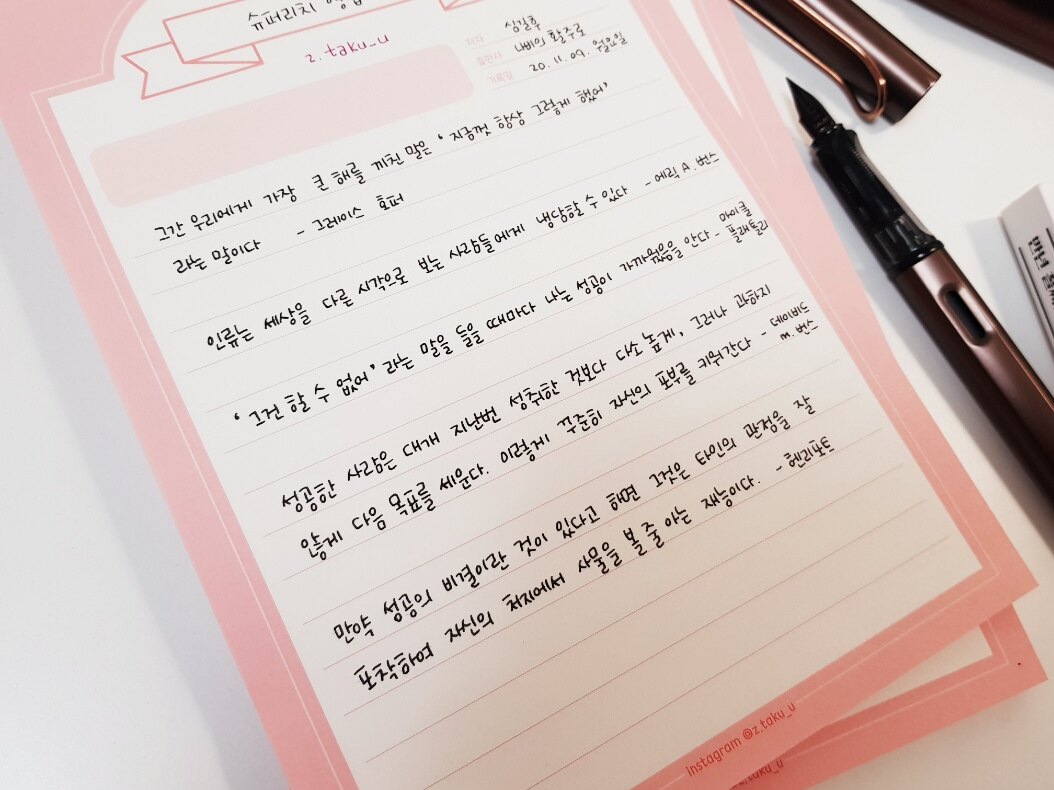 슈퍼리치
z.taku_u
저자 심길후
출판사 나비의 활주로
기록일 20. 11. 09. 월요일
그간 우리에게 가장 큰 해를 끼친 말은 ‘지금껏 항상 그렇게 했어’
라는 말이다 - 그레이스 호퍼
인류는 세상을 다른 시각으로 보는 사람들에게 냉담할 수 있다 - 에릭 A. 번스
‘그건 할 수 없어’ 라는 말을 들을 때마다 나는 성공이 가까웠음을 안다 - 마이클
플래틀리
성공한 사람은 대개 지난번 성취한 것보다 다소 높게, 그러나 과하지
않게 다음 목표를 세운다. 이렇게 꾸준히 자신의 포부를 키워간다 - 데이비드
m. 번스
만약 성공의 비결이란 것이 있다고 해면 그것은 타인의 관점을 잘
포착하여 자신의 처지에서 사물을 볼 줄 아는 재능이다. - 헨리포드
instagram @z.taku_u
z.taku_u
만년